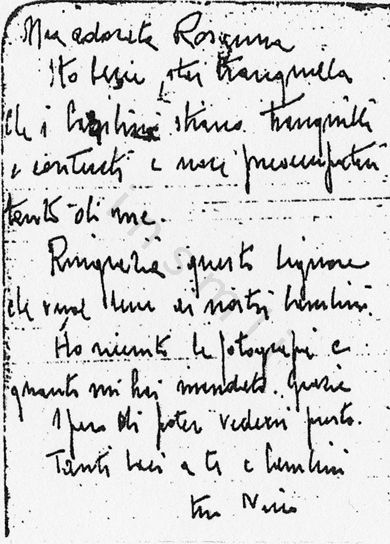 Mia adorata Rosanna
Sto bene stai tranquilla
che i bambini stiano tranquilli
e contenti e non preoccuparti
tanto di me.
Ringrazia questo signore
che vuol bene ai nostri bambini.
Ho ricevuto le fotografie e
quanto mi hai mandato. Grazie
Spero di poter vedervi presto.
Tanti baci a te e bambini
tuo Nino